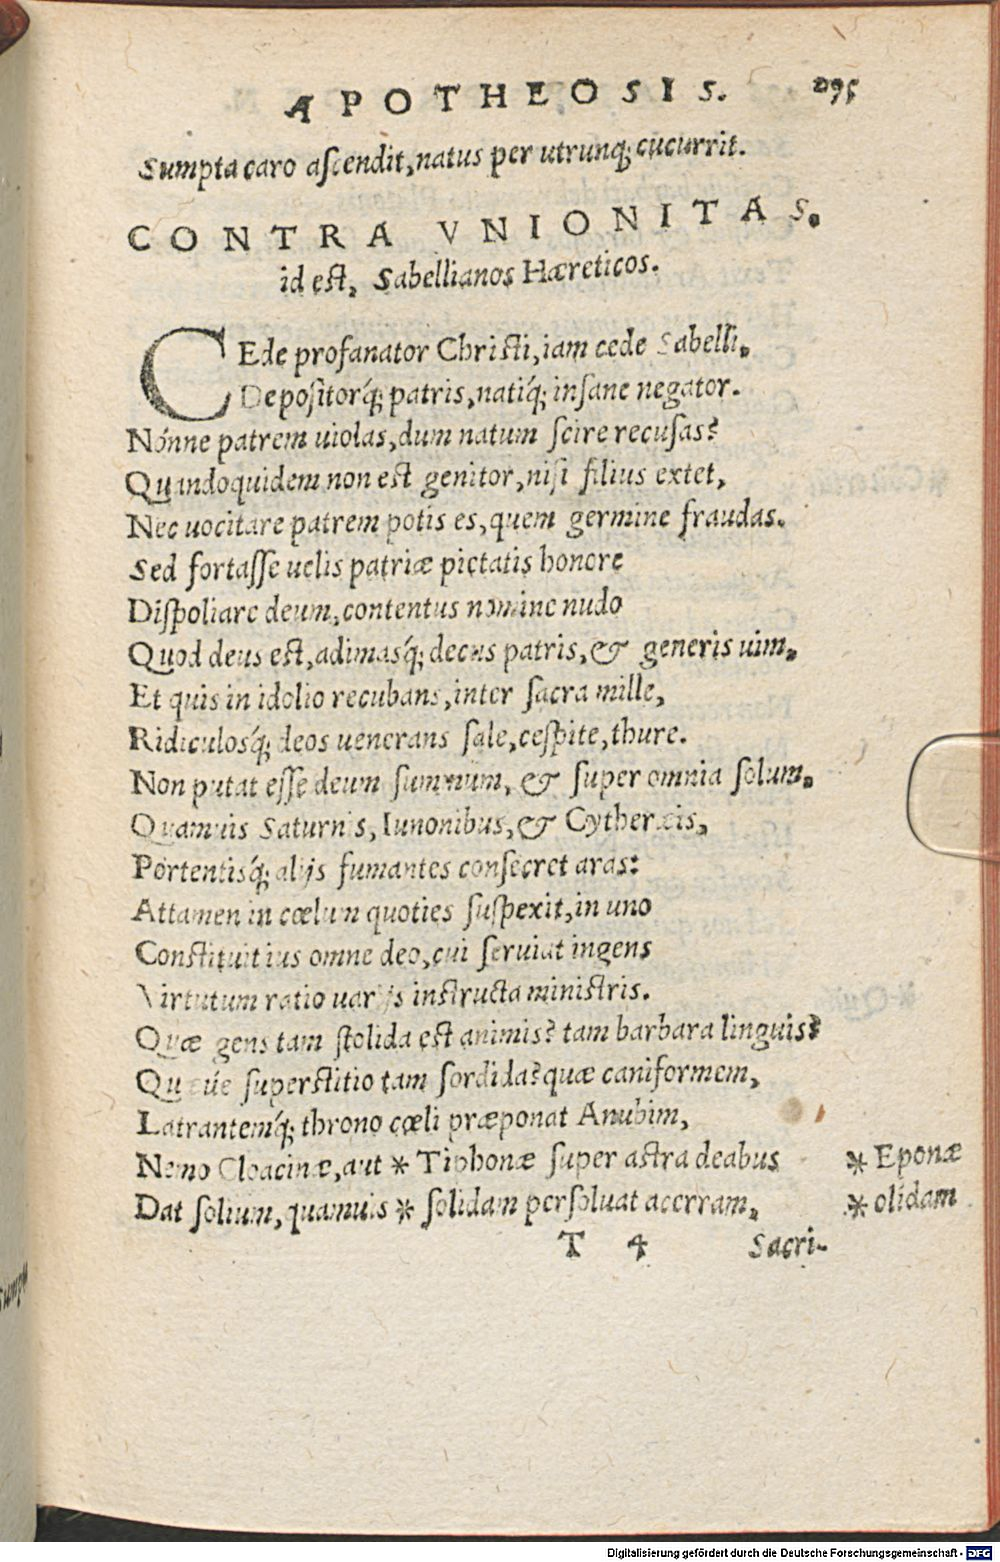 APOTHEOSIS. 295
Sumpta caro ascendit, natus per utrunq; cucurrit.
CONTRA VNIONITAS.
id est, Sabellianos Hæreticos.
CEde profanator Christi, iam cede Sabelli,
Depositorq́; patris, natiq́; insane negator.
Nónne patrem uiolas, dum natum scire recusas?
Quandoquidem non est genitor, nisi filius extet,
Nec uocitare patrem potis es, quem germine fraudas.
Sed fortasse uelis patriæ pietatis honore
Dispoliare deum, contentus nomine nudo
Quod deus est, adimasq́; decus patris, & generis uim,
Et quis in idolio recubans, inter sacra mille,
Ridiculosq́; deos uenerans sale, cespite, thure.
Non putat esse deum summum, & super omnia solum,
Quamuis Saturnis, Iunonibus, & Cythereis,
Portentisq́; alijs fumantes consecret aras:
Attamen in cœlum quoties suspexit, in uno
Constituit ius omne deo, cui seruiat ingens
Virtutum ratio uarijs instructa ministris.
Quæ gens tam stolida est animis? tam barbara linguis?
Quæúe superstitio tam sordida? quæ caniformem,
Latrantemq́; throno cœli præponat Anubim,
Nemo Cloacinæ, aut * Tiphonæ super astra deabus * Eponæ
Dat solium, quamuis * solidam persoluat acerram, * olidam
T 4 Sacri-
Digitalisierung gefördert durch die Deutsche Forschungsgemeinschaft - DFG